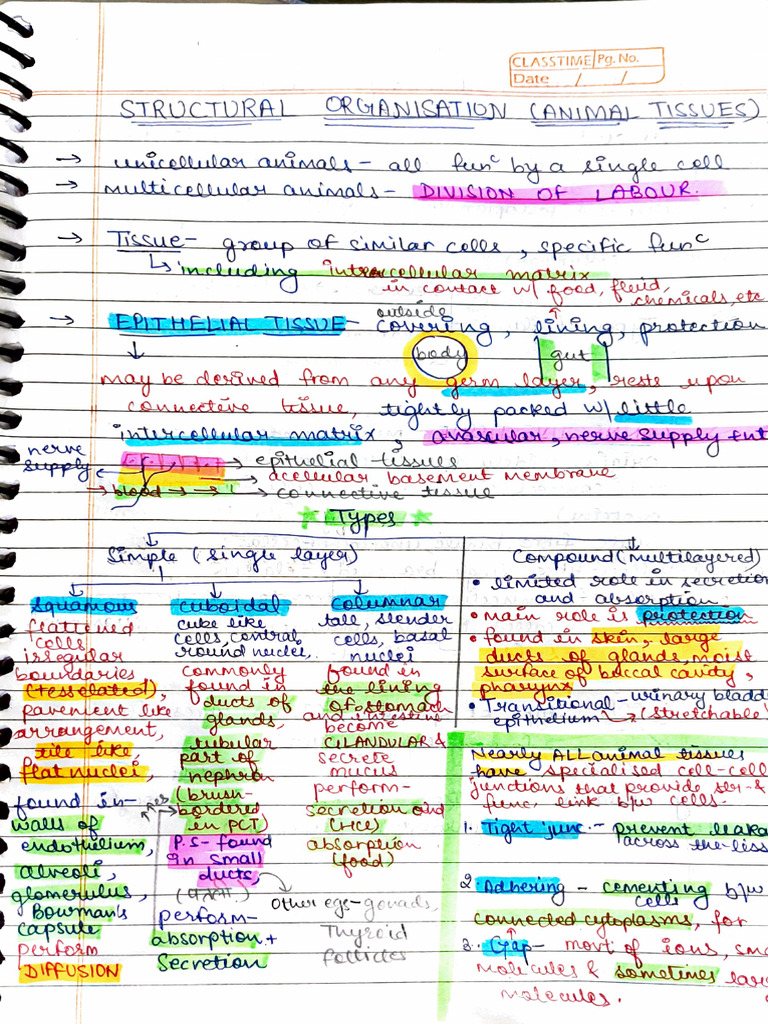 CLASSTIME Pg. No.
Date / /
STRUCTURAL ORGANISATION (ANIMAL TISSUES)
→ unicellular animals - all funᶜ by a single cell
→ multicellular animals - DIVISION OF LABOUR.
→ Tissue - group of similar cells, specific funᶜ
↳ including intercellular matrix
in contact w/ food, fluid,
chemicals, etc
outside
→ EPITHELIAL TISSUE - covering, lining, protection
body gut
may be derived from any germ layer, rests upon
connective tissue, tightly packed w/ little
intercellular matrix, avascular, nerve supply
nerve supply
→ epithelial tissues
→ acellular basement membrane
→ blood → → → connective tissue
★ Types ★
Simple (single layer)
Squamous
flattened
cells
irregular
boundaries
(tesselated),
pavement like
arrangement,
tile like
flat nuclei,
found in -
walls of
endothelium,
alveoli,
glomerulus,
Bowman's
capsule
perform
DIFFUSION
cuboidal
cube like
cells, central
round nuclei,
commonly
found in
ducts of
glands,
tubular
part of
nephron
(brush-
bordered
in PCT)
P.S - found
in small
ducts,
perform -
absorption +
Secretion
Other egs - gonads,
Thyroid
follicles
columnar
tall, slender
cells, basal
nuclei
found in
the lining
of stomach
and intestine
become
GLANDULAR &
secrete
mucus
perform -
secretion and
(HCl)
absorption
(food)
Compound (multilayered)
• limited role in secretion
and absorption
• main role is protection
• found in skin, large
ducts of glands, moist
surface of buccal cavity,
pharynx
• Transitional - urinary bladd
epithelium → (stretchable)
Nearly ALL animal tissues
have specialised cell-cell
junctions that provide str. &
func. link b/w cells.
1. Tight junc. - prevent leaka
across the tiss
2. Adhering - cementing b/w
cells
connected cytoplasms, for
3. Gap - movt of ions, sma
molecules & sometimes lar
molecules.